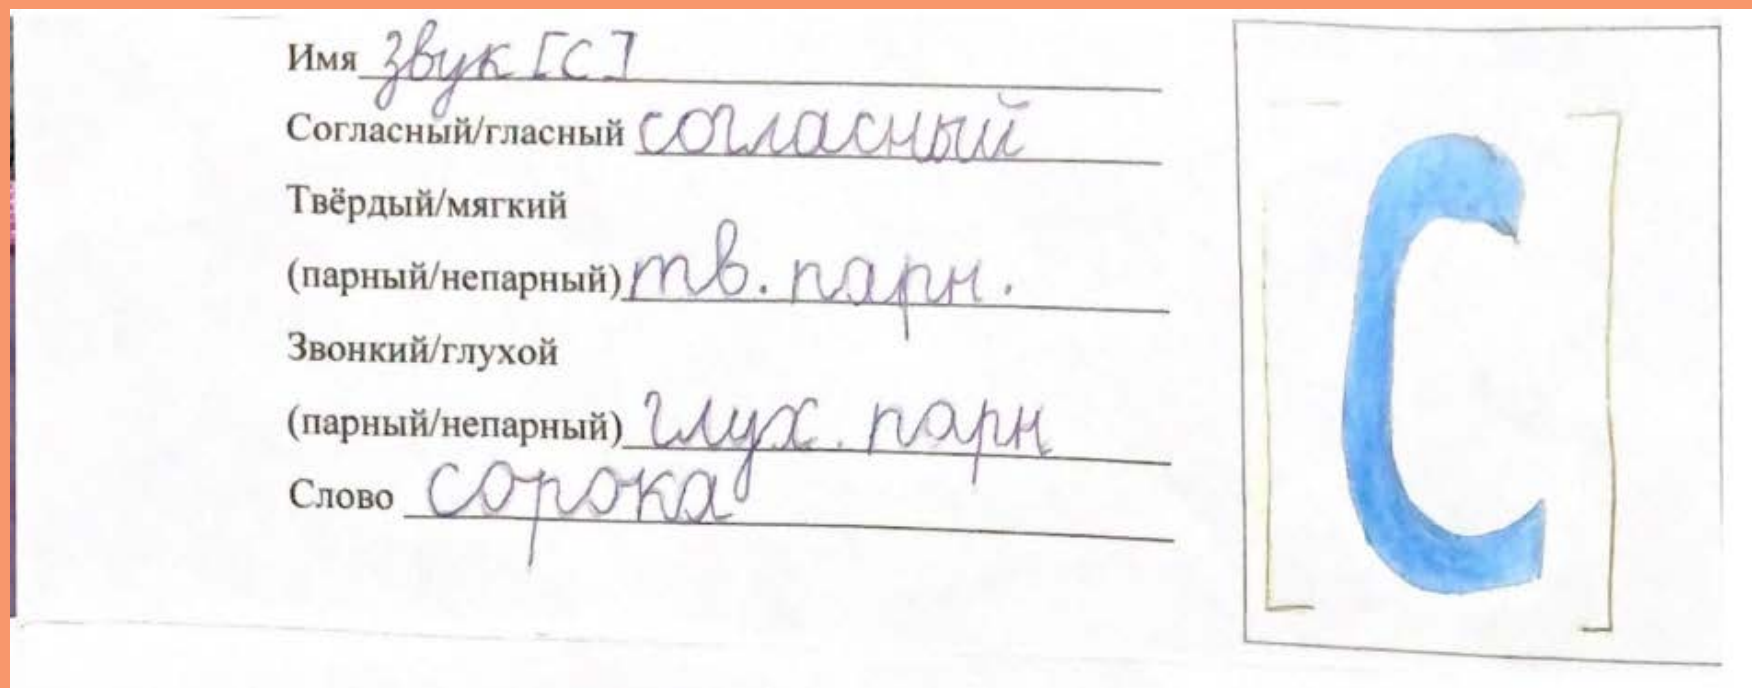 Имя звук [с]
Согласный/гласный согласный
Твёрдый/мягкий
(парный/непарный) тв. парн.
Звонкий/глухой
(парный/непарный) глух. парн
Слово сорока
[С]